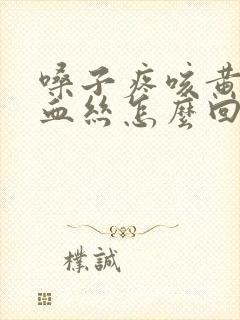 嗓子疼咳黄
血丝怎麼回
樸誠